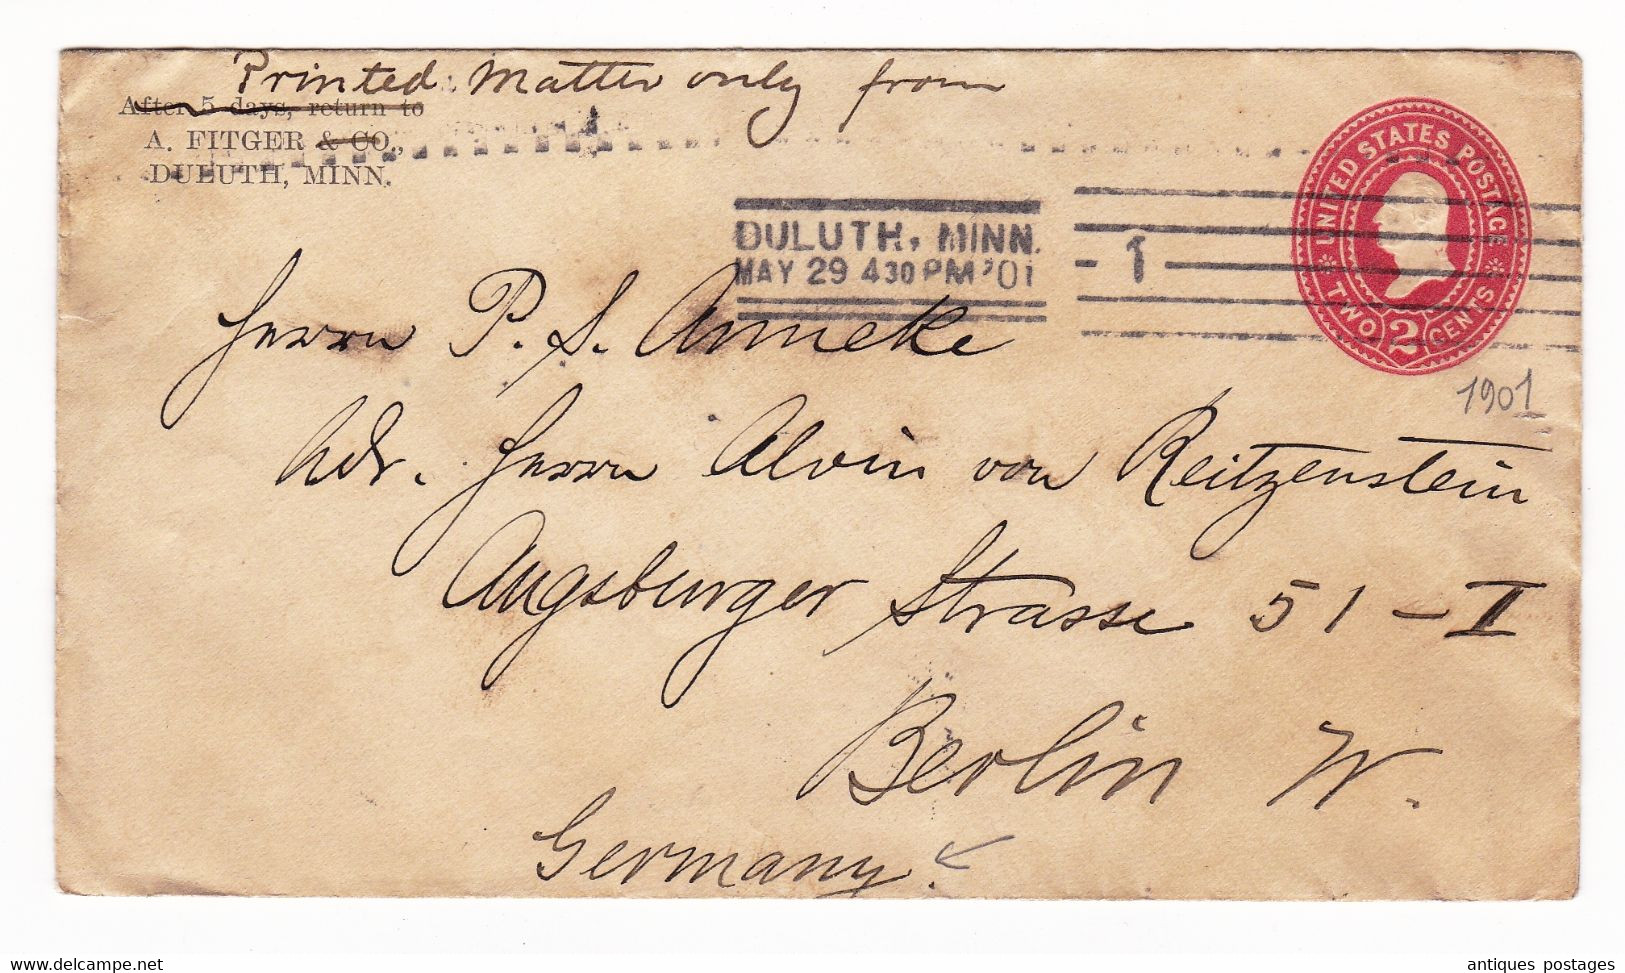 Printed Matter only from
After 5 days, return to
A. FITGER & CO.,
DULUTH, MINN.
UNITED STATES POSTAGE
TWO 2 CENTS
DULUTH, MINN.
MAY 29 430 PM '01
1
1901
Herrn P. S. Anneke
Adr. Herrn Alvin von Reitzenstein
Augsburger Strasse 51 – II
Berlin W.
Germany.
www.delcampe.net
antiques postages